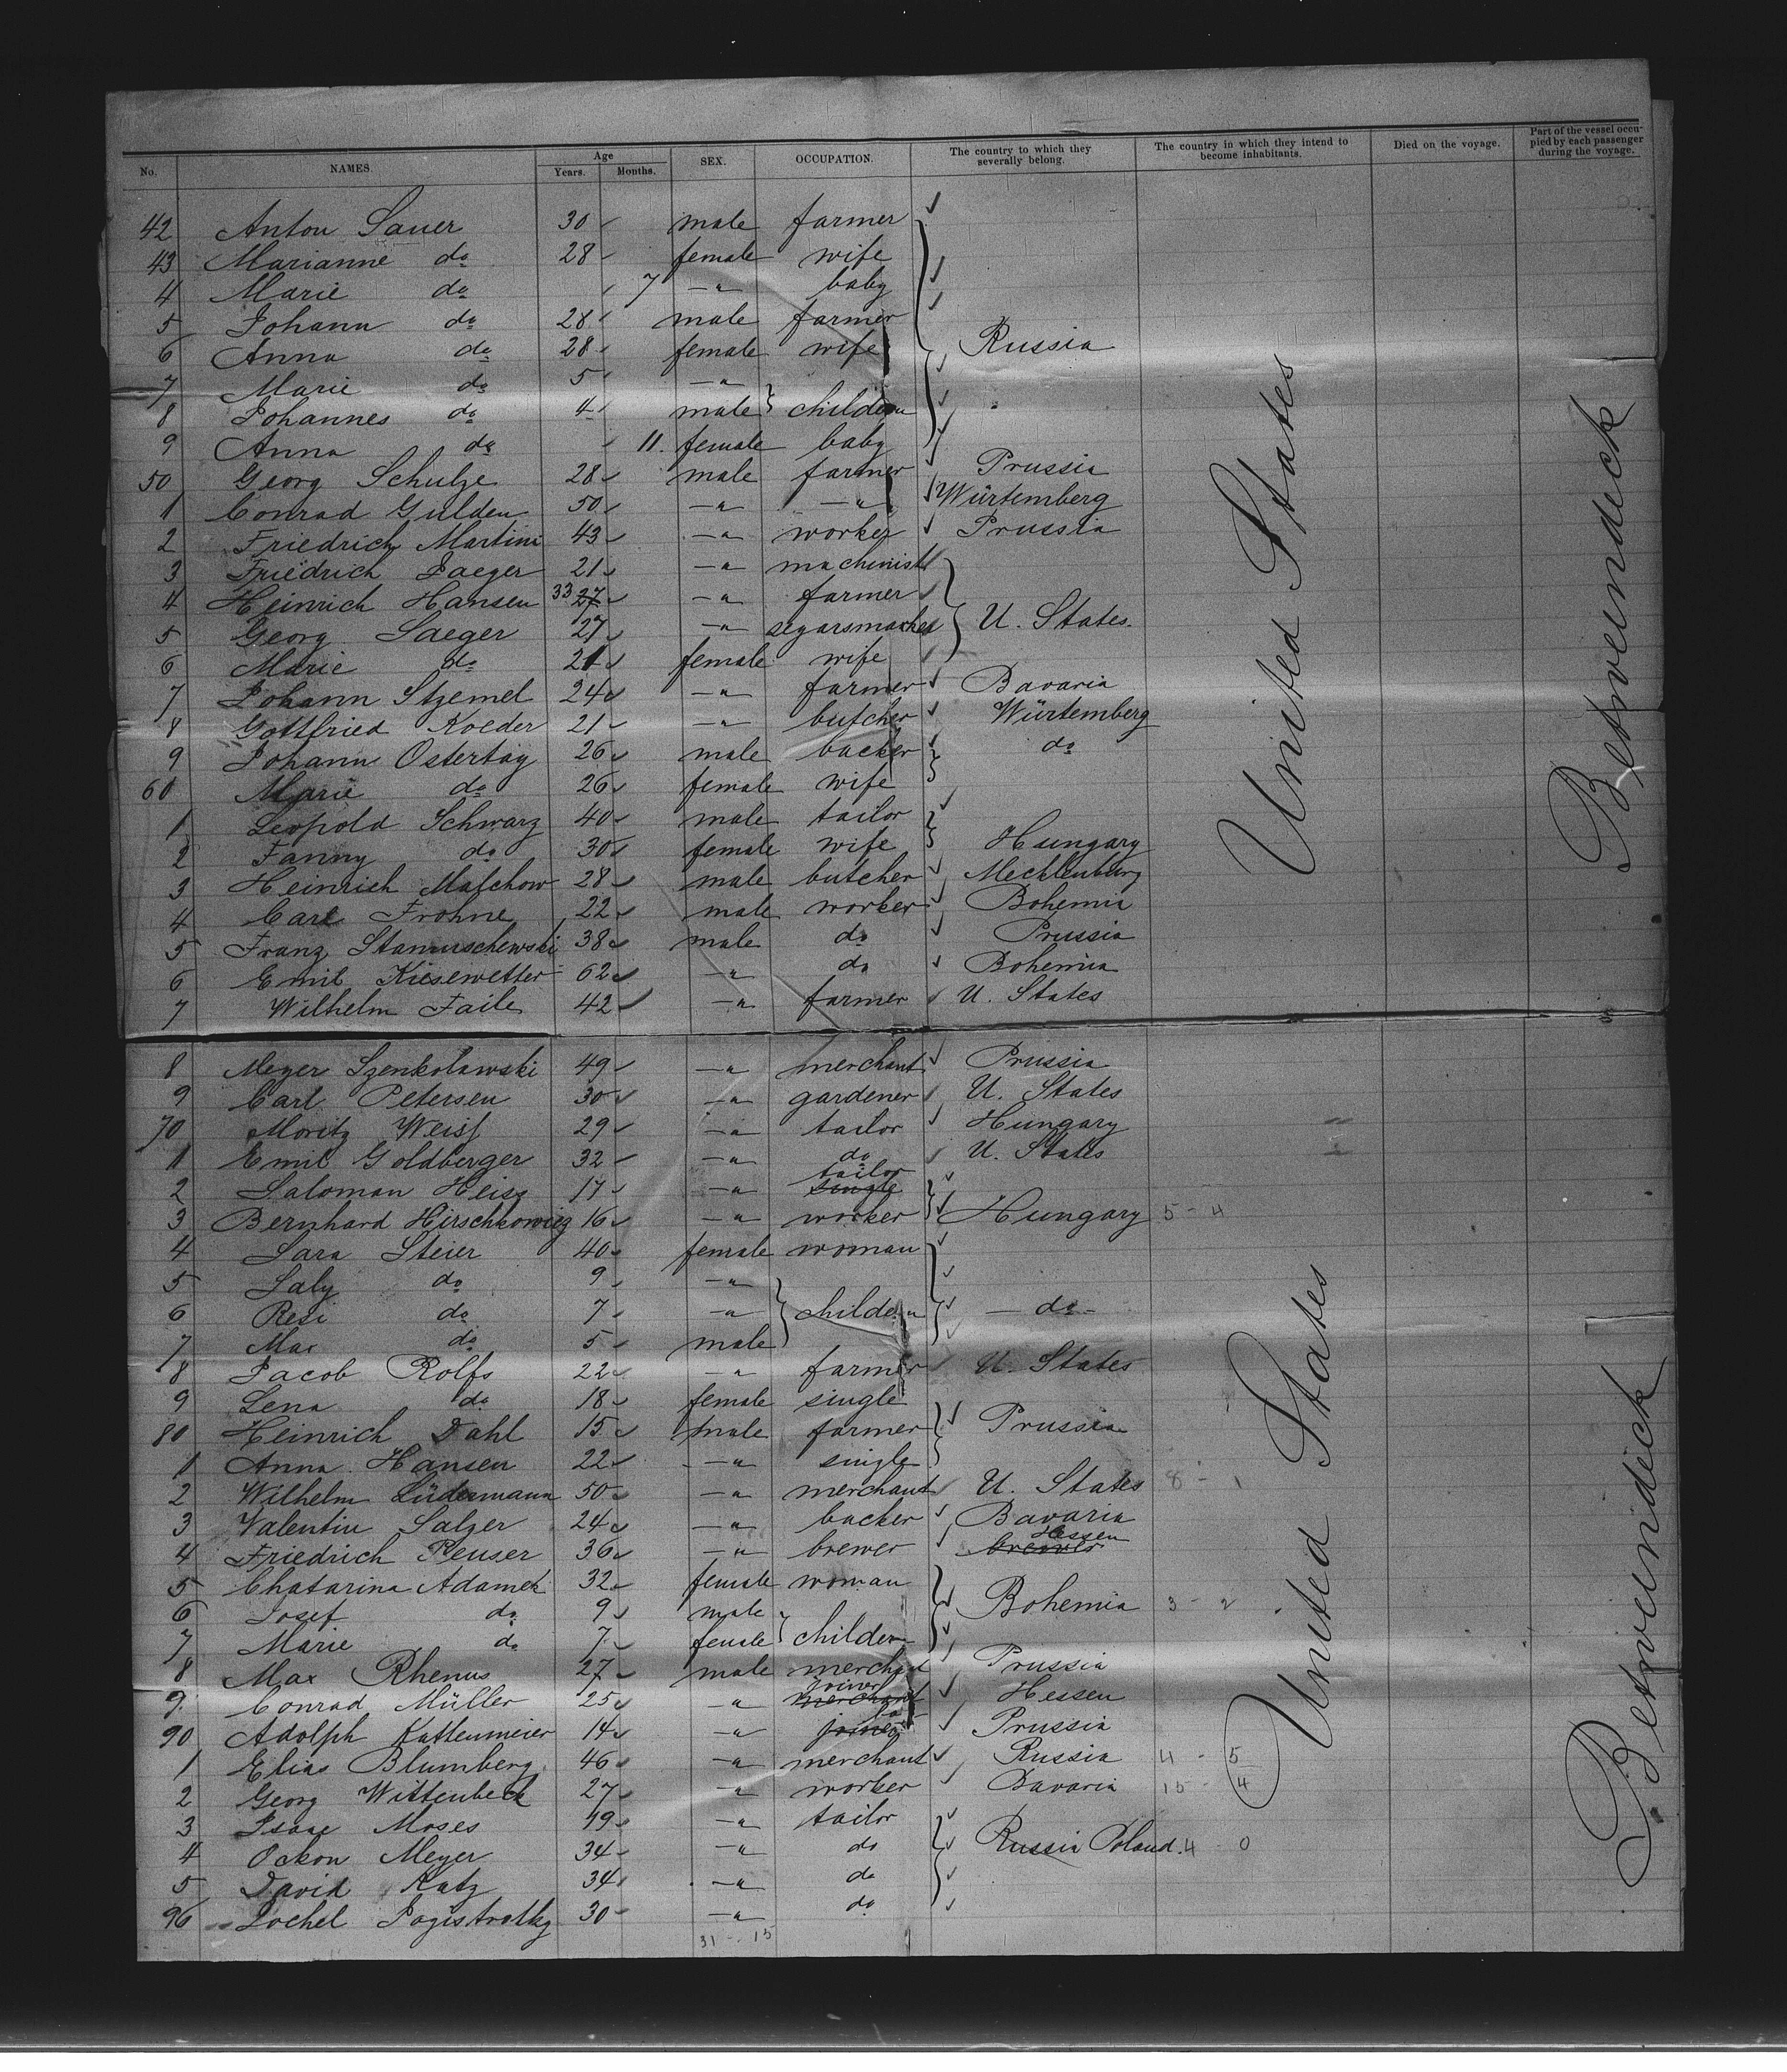 No. NAMES. Age Years. Months. SEX. OCCUPATION. The country to which they severally belong. The country in which they intend to become inhabitants. Died on the voyage. Part of the vessel occupied by each passenger during the voyage.
42 Anton Sauer 30 male farmer
43 Marianne do 28 female wife
4 Marie do 7 —"— baby
5 Johann do 28 male farmer
6 Anna do 28 female wife Russia
7 Marie do 5 —"—
8 Johannes do 4 male children
9 Anna do 11. female baby
50 Georg Schulze 28 male farmer Prussia
1 Conrad Gulden 50 —"— —"— Würtemberg
2 Friedrich Martini 43 —"— worker Prussia
3 Friedrich Jaeger 21 —"— machinist
4 Heinrich Hansen 33 27 —"— farmer
5 Georg Saeger 27 —"— segarsmacher U. States.
6 Marie do 21 female wife
7 Johann Stzemel 24 —"— farmer Bavaria
8 Gottfried Koeder 21 —"— butcher Würtemberg
9 Johann Ostertag 26 male backer do
60 Marie do 26 female wife
1 Leopold Schwarz 40 male tailor
2 Fanny do 30 female wife Hungary
3 Heinrich Malchow 28 male butcher Mecklenburg
4 Carl Frohne 22 male worker Bohemia
5 Franz 38 male do Prussia
6 Emil Kiesewetter 62 —"— do Bohemia
7 Wilhelm Faile 42 —"— farmer U. States
United States
Betweendeck
8 Meyer Szenkolawski 49 —"— merchant Prussia
9 Carl Petersen 30 —"— gardener U. States
70 Moritz Weiss 29 —"— tailor Hungary
1 Emil Goldberger 32 —"— do U. States
2 Saloman Heisz 17 —"— tailor single
3 Bernhard Hirschkowicz 16 —"— worker Hungary 5 - 4
4 Sara Steier 40 female woman
5 Saly do 9 —"—
6 Resi do 7 —"— children — do —
7 Max do 5 male
8 Jacob Rolfs 22 —"— farmer U. States
9 Lena do 18 female single
80 Heinrich Dahl 15 male farmer Prussia
1 Anna Hansen 22 —"— single
2 Wilhelm Lüdermann 50 —"— merchant U. States 8 - 1
3 Valentin Salzer 24 —"— backer Bavaria
4 Friedrich Reuser 36 —"— brewer Hessen brewer
5 Chatarina Adamek 32 female woman
6 Josef do 9 male Bohemia 3 - 2
7 Marie do 7 female children
8 Max Rhenus 27 male merchant Prussia
9. Conrad Müller 25 —"— joiner merchant Hessen
90 Adolph Kattenmeier 14 —"— do joiner Prussia
1 Elias Blumberg 46 —"— merchant Russia 4 - 5
2 Georg Wittenbeck 27 —"— worker Bavaria 15 - 4
3 Isaac Moses 49 —"— tailor
4 Ockon Meyer 34 —"— do Russia Poland. 4 - 0
5 David Katz 34 —"— do
96 Jochel 30 —"— do
31 - 15
United States
Betweendeck